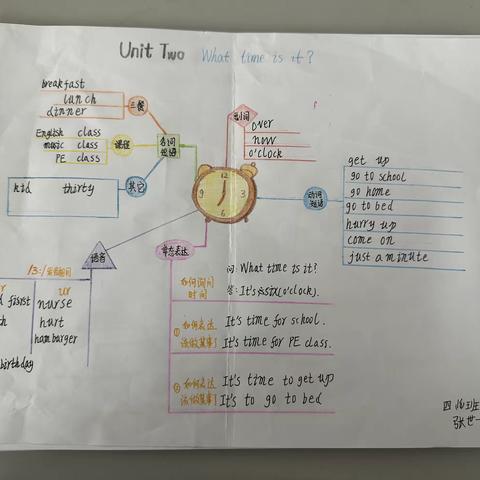 Unit Two What time is it?
breakfast
lunch
dinner
三餐
English class
music class
PE class
课程
kid thirty
其它
名词
短语
副词
over
now
o'clock
12
3
6
9
动词
短语
get up
go to school
go home
go to bed
hurry up
come on
just a minute
语音
ur
first
nurse
hurt
hambarger
birthday
常态表达
如何询问
时间
问: What time is it?
答: It's six(o'clock).
① 如何表达
该做某事!
It's time for school.
It's time for PE class.
② 如何表达
该做某事!
It's time to get up
It's to go to bed